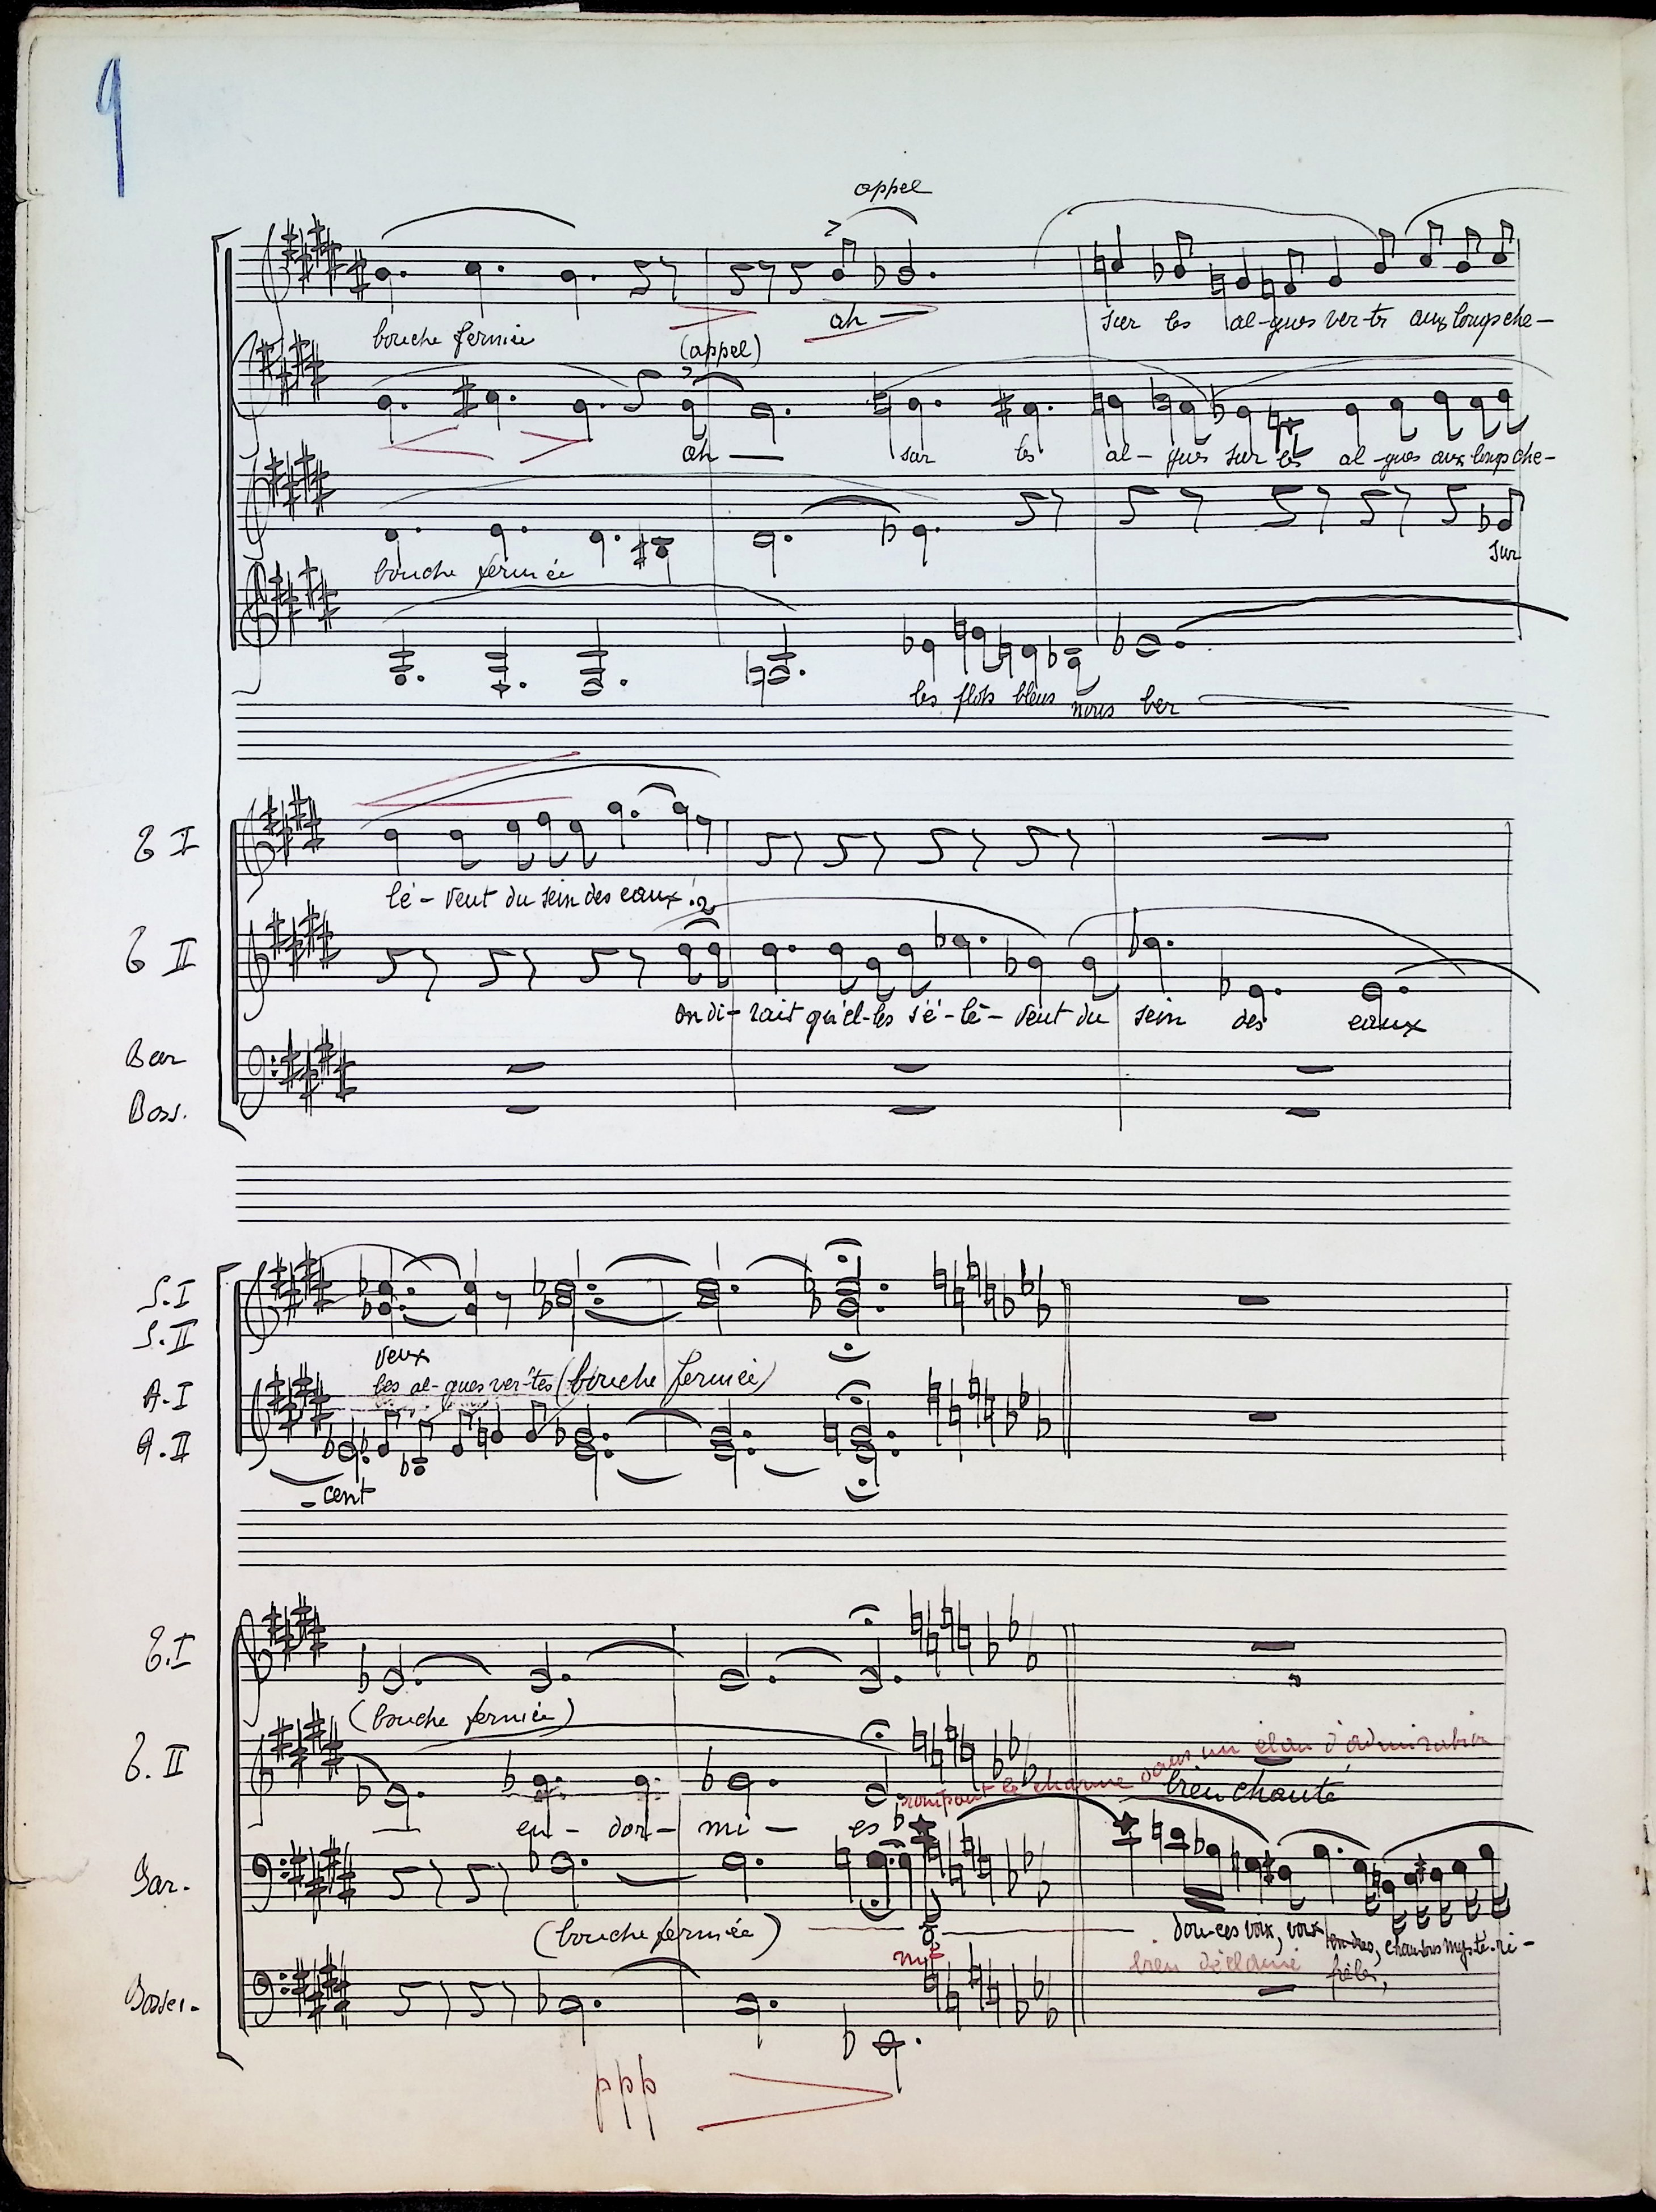 9
appel
ah —
sur les al-gues ver-ts aux longs che-
bouche fermée
(appel)
ah — sur les al-gues sur les al-gues aux longs che-
sur
bouche fermée
les flots bleus nous ber
T I
lé-vent du sein des eaux.
T II
on di-rait qu'el-les s'é-lè-vent du sein des eaux
Bar
Bass.
S.I
S.II
veux
les al-gues ver-tes (bouche fermée)
A.I
A.II
- cent
T.I
(bouche fermée)
T.II
rompant le charme dans un élan d'admiration
bien chanté
en - dor - mi - es
Bar.
(bouche fermée)
dou-ces voix, voix tendres, chansons mysté-ri-
mf
bien déclamé
frêles,
Basses.
ppp